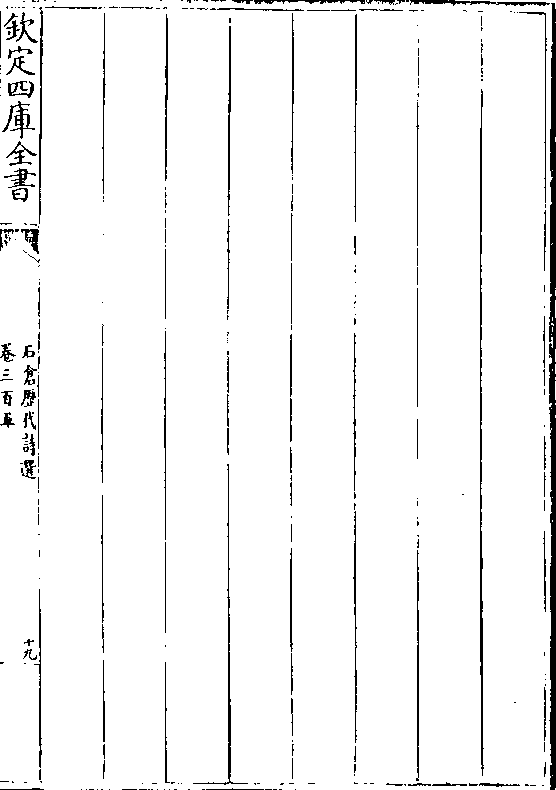 欽定四庫全書
石倉歷代詩選
卷三百五
十九